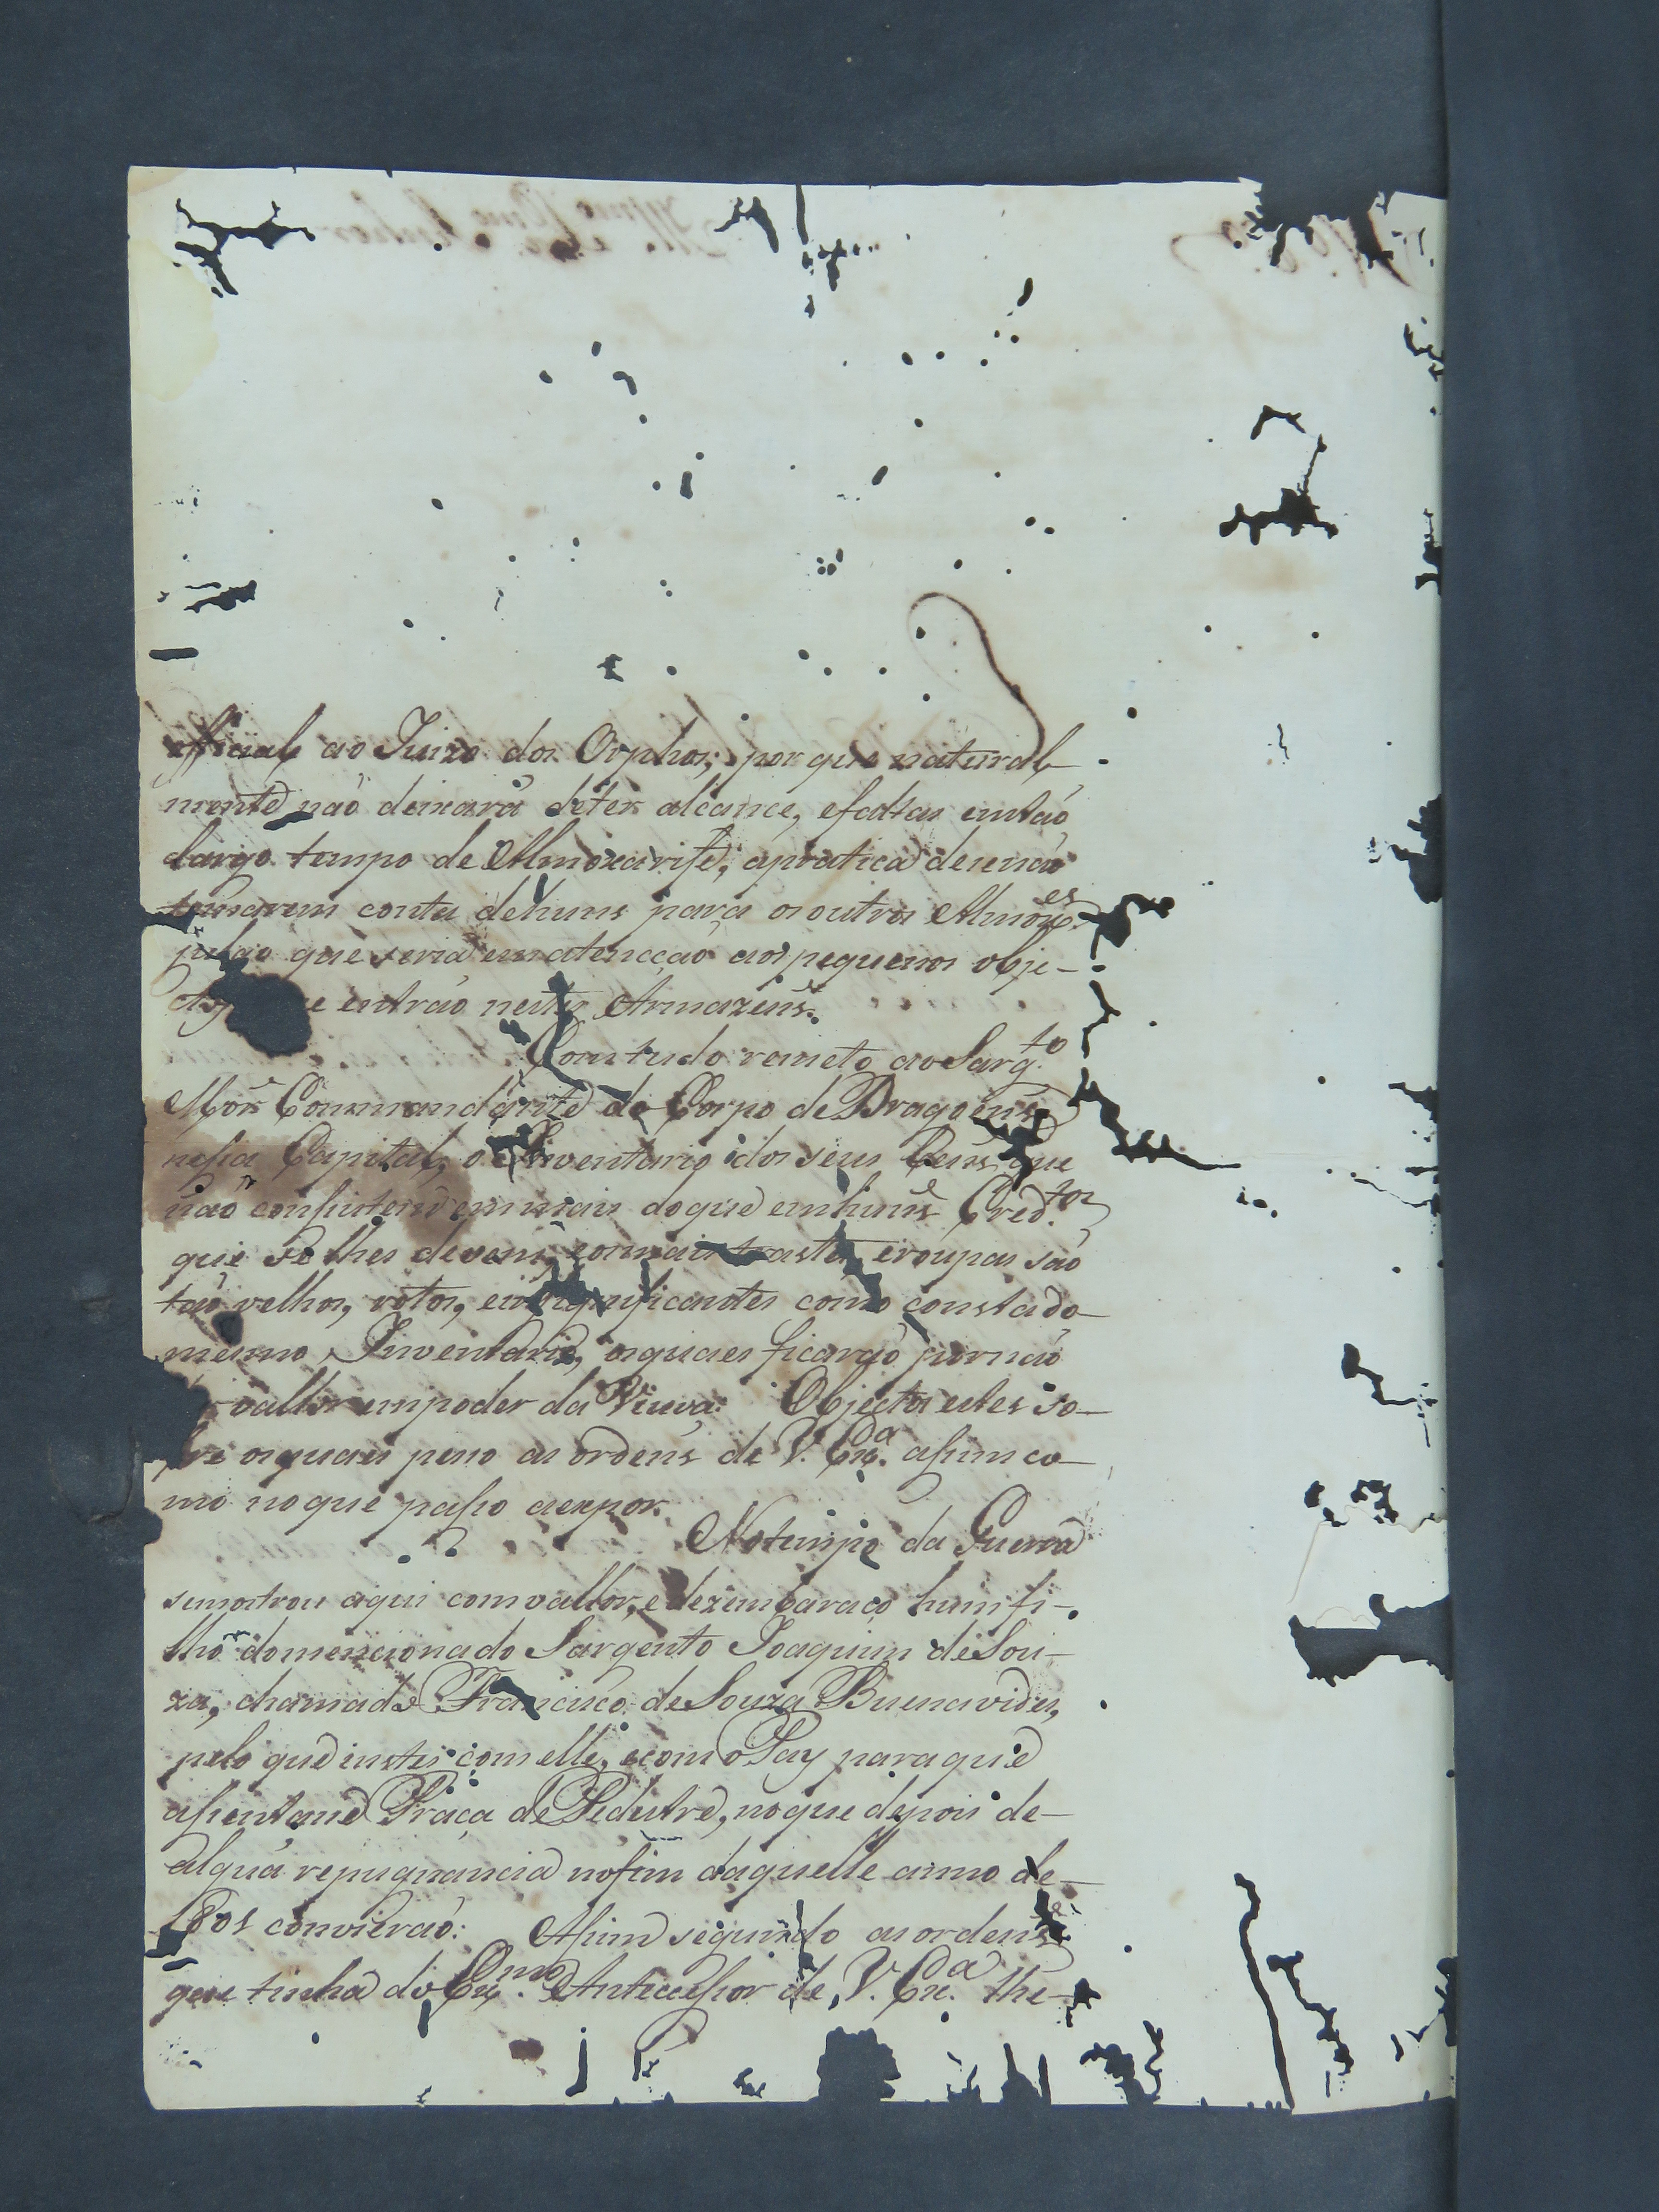 official ao Juizo dos Orphos; por que natural-
mente não deixará deter alcance, efaltas emtão
largo tempo de Almoxarife; apratica desenão
tomarem contas dehuns para osoutros Almox.es
julgo que seria ematencção aos pequenos obje-
ctos entrão nestes Armazens.
Comtudo remeto aoSarg.to
Mór Commandante do Corpo de Dragoens
nessa Capital, o Inventario dos seus Bens, que
não consistem emmais doque emhuns Cred.tos
que selhes devem, eomais trastes, eroupas são
tão velhos, rotos, einsignificantes como constado
mesmo Inventario, osquaes ficarão pornão
vallor empoder da Viuva: Objectos estes so-
bre osquaes peço as ordens de V. Ex.a assim co-
mo noque passo aexpor.
Notempo da Guerra
semostrou aqui comvallor, edezembaraço humfi-
lho domencionado Sargento Joaquim deSou-
za, chamado Francisco de Souza Buenavides,
pelo que instei comelle, ecomoPay paraque
assentasse Praça de Pedestre, noque depois de
algũa repugnancia nofim daquelle anno de
1801 convierão: Assim seguindo asordens
que tinha do Ex.mo Antecessor de V. Ex.a lhe